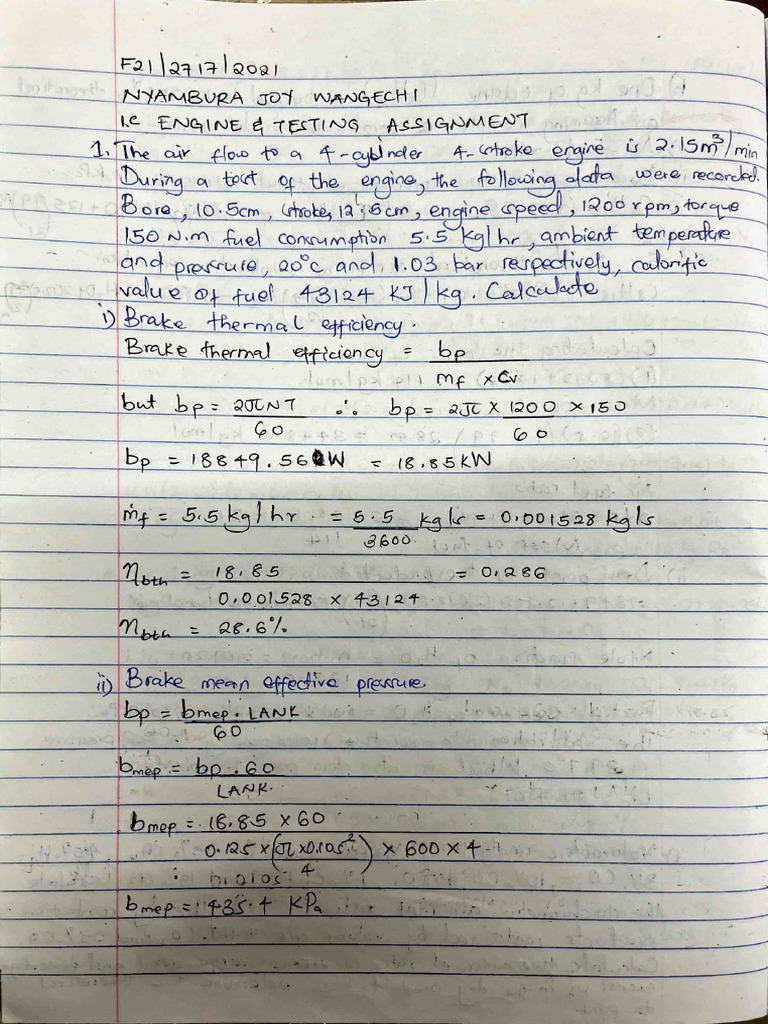 F21/2717/2021
NYAMBURA JOY WANGECHI
I.C ENGINE & TESTING ASSIGNMENT
1. The air flow to a 4-cylinder 4-stroke engine is 2.15m³/min
During a test of the engine, the following data were recorded.
Bore, 10.5cm, stroke, 12.5cm, engine speed, 1200rpm, torque
150 N.m fuel consumption 5.5 kg/hr, ambient temperature
and pressure, 20°c and 1.03 bar respectively, calorific
value of fuel 43124 KJ/kg. Calculate
i) Brake thermal efficiency.
Brake thermal efficiency = bp
mf × Cv
but bp = 2πNT ∴ bp = 2π × 1200 × 150
60 60
bp = 18849.56 W = 18.85kW
ṁf = 5.5 kg/hr = 5.5 kg/s = 0.001528 kg/s
3600.
ηbth = 18.85 = 0.286
0.001528 × 43124
ηbth = 28.6%
ii) Brake mean effective pressure.
bp = bmep . LANK
60
bmep = bp . 60
LANK.
bmep = 18.85 × 60
0.125 × (π × 0.105²) × 600 × 4
4
bmep = 435.4 KPa